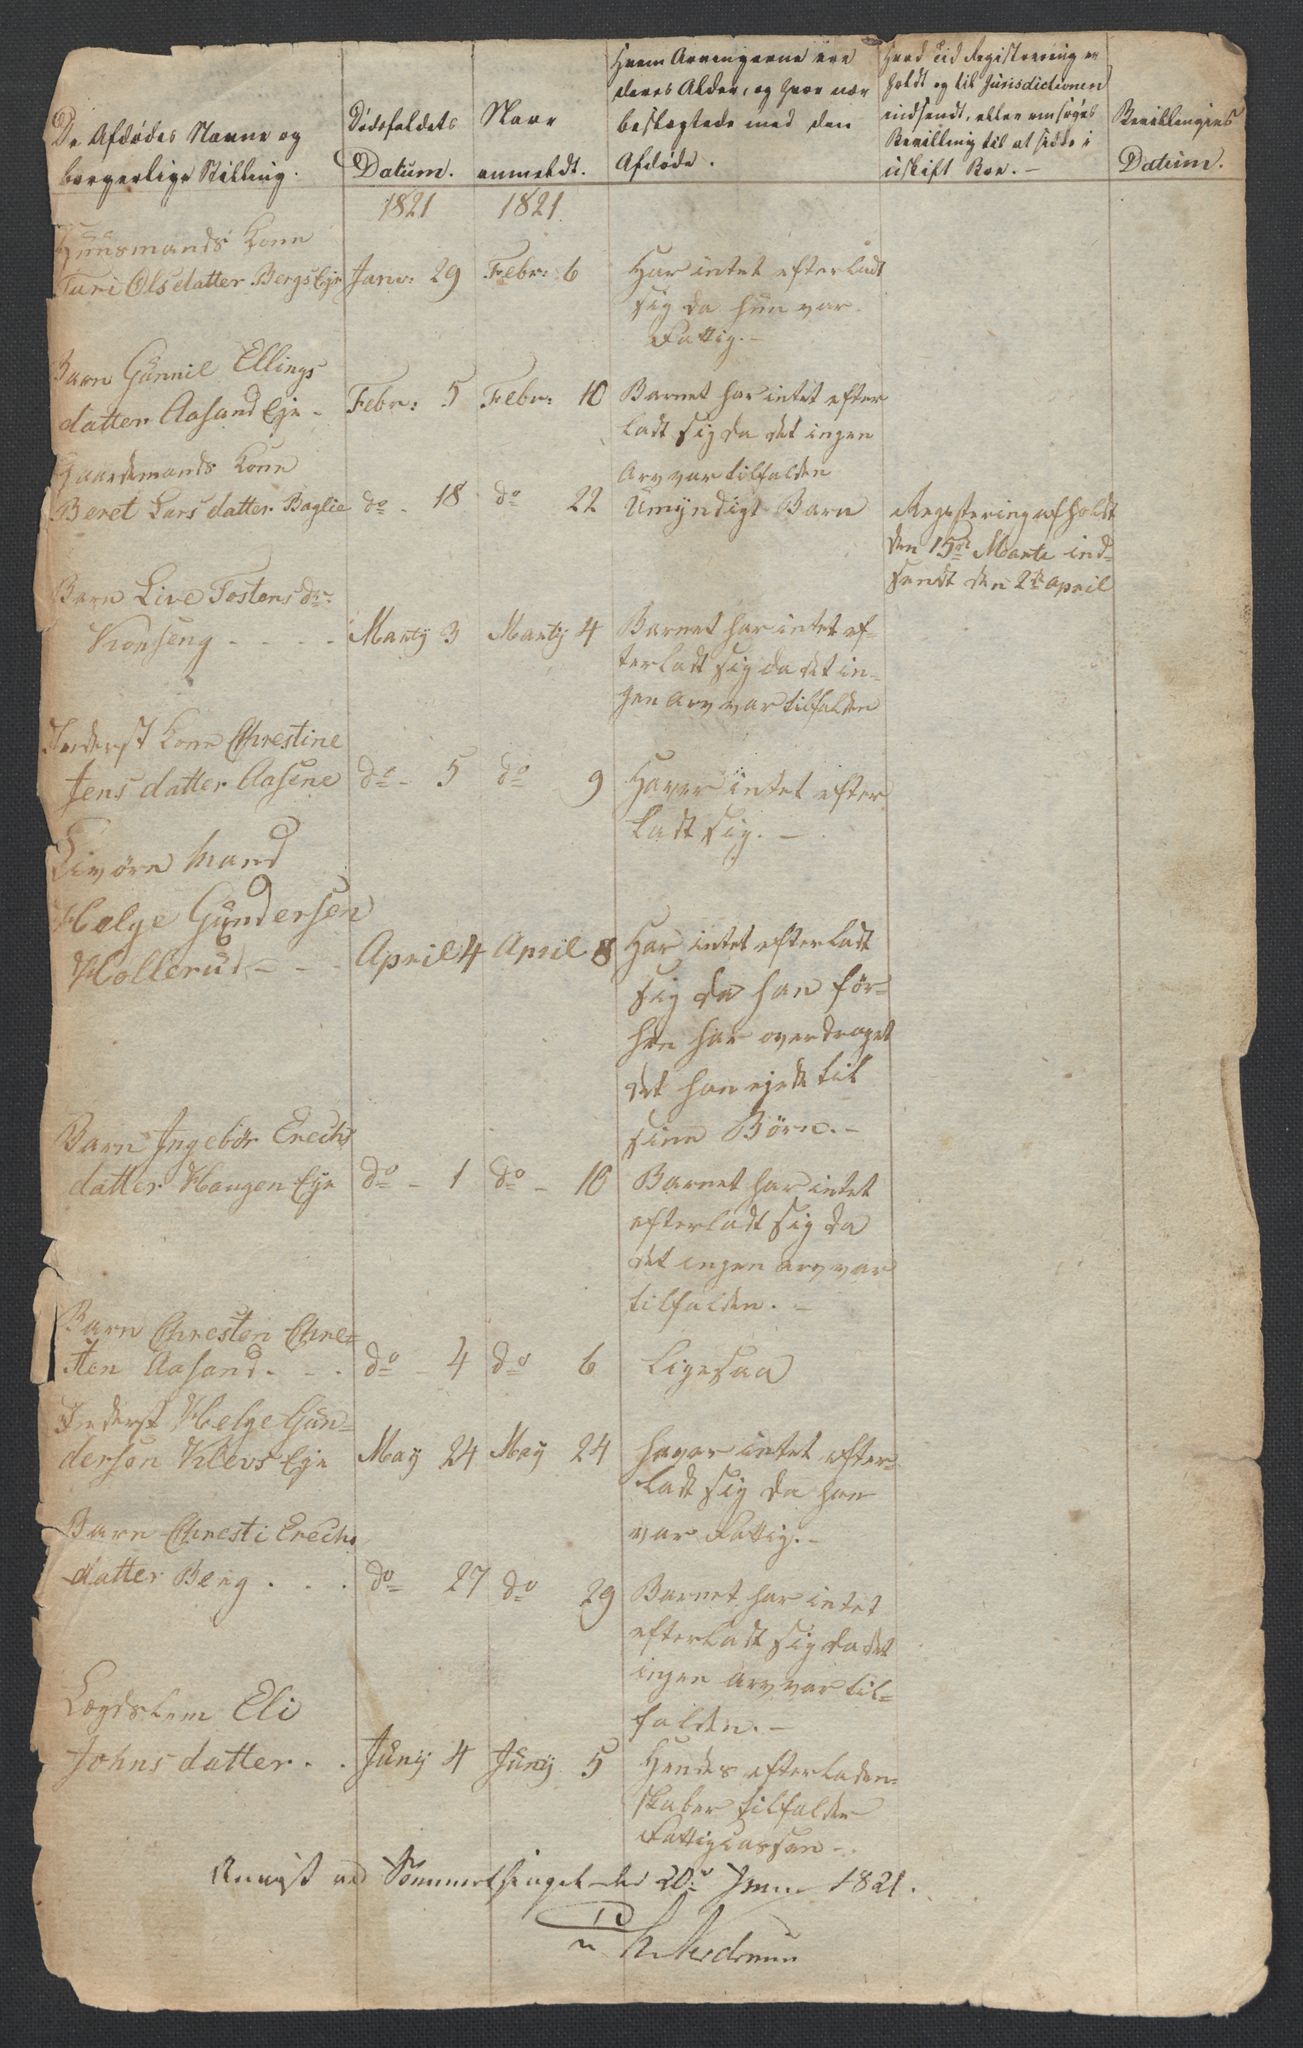 De Afdødes Navne og
borgerlige Stilling.
Dødsfaldets
Datum.
Naar
anmeldt.
Hvem Arvingerne ere
deres Alder, og hvor nær
beslægtede med den
Afdøde.
Hvad tid Registrering er
holdt og til Jurisdictionen
indsendt, eller om søgt
Bevilling til at sidde i
uskift Boe. -
Bevillingens
Datum.
1821 1821
Huusmands Kone
Turi Olsdatter Bergs Eje Janv: 29 Febr: 6 Har intet efterladt
sig da hun var
Fattig. -
Barn Gunnil Ellings
datter Aasand Eje - Febr: 5 Febr: 10 Barnet har intet efter
ladt sig da det ingen
Arv var tilfalden
Gaardmands Kone
Beret Larsdatter Baglie do - 18 do 22 Umyndigt Barn Registering afholdt
den 15de Marti ind-
sendt den 2de April
Barn Live Tostens dr:
Konseng - - - - Martij 3 Martij 4 Barnet har intet ef-
terladt sig da det in-
gen Arv var tilfalden
Inderst Kone Chrestine
Jens datter Aasene do - 5 do 9 Haver intet efter
ladt sig. -
Livøre Mand
Helge Gundersen
Hollerud - - - April 4 April 8 Har intet efterladt
sig da han før-
hen har overdraget
det han ejede til
sine Børn. -
Barn Ingebør Erechs
datter Haugen Eje do - 1 do - 10 Barnet har intet
efterladt sig da
det ingen arv var
tilfalden. -
Barn Chresten Chre-
sten Aasand. - - do - 4 do 6 Ligesaa
Inderst Helge Gun-
dersen Klevs Eje May 24 May 24 haver intet efter-
ladt sig da han
var Fattig. -
Barn Chresti Erechs
datter Berg . . . do 27 do 29 Barnet har intet
efterladt sig da det
ingen Arv var til-
falden. -
Lægdslem Eli
Johnsdatter . . Junij 4 Junij 5 Hendes efterladen-
skaber tilfalder
Fattigcassen -.
ved Sommerthinget den 20de Junii 1821.